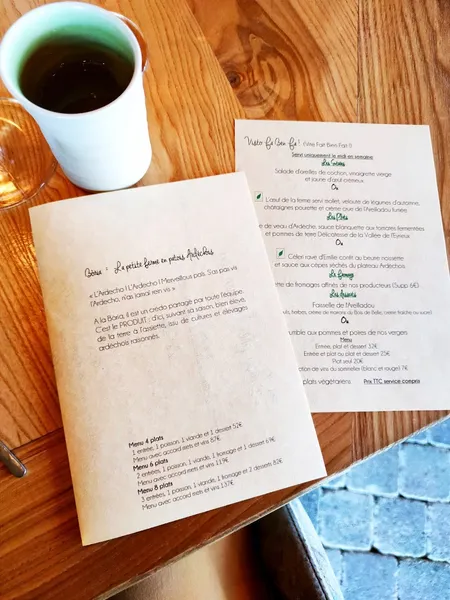 Bòria : La petite ferme en patois Ardéchois
« L'Ardecho ! L'Ardecho ! Merveillous païs, S'as pas vis
l'Ardecho, n'as jamaï ren vis »
A la Bòria, il est un credo partagé par toute l'équipe.
C'est le PRODUIT ; d'ici, suivant sa saison, bien élevé,
de la terre à l'assiette, issu de cultures et élevages
ardéchois raisonnés.
Menu 4 plats
1 entrée, 1 poisson, 1 viande et 1 dessert 52€
Menu avec accord mets et vins 87€
Menu 6 plats
2 entrées, 1 poisson, 1 viande, 1 fromage et 1 dessert 69€
Menu avec accord mets et vins 119€
Menu 8 plats
3 entrées, 1 poisson, 1 viande, 1 fromage et 2 desserts 82€
Menu avec accord mets et vins 137€
Visto Fa Ben Fa ! (Vite Fait Bien Fait !)
Servi uniquement le midi en semaine
Les Entrées
Salade d'oreilles de cochon, vinaigrette vierge
et jaune d'œuf crémeux
Ou
L'œuf de la ferme servi mollet, velouté de légumes d'automne,
champignons pourpette et crème crue de l'Areilladou fumée
Les Plats
de veau d'Ardèche, sauce blanquette aux tomates fermentées
et pommes de terre Délicatesse de la Vallée de l'Eyrieux
Ou
Céleri rave d'Emilie confit au beurre noisette
et sauce aux cèpes séchés du plateau Ardéchois.
Le Fromage
de fromages affinés de nos producteurs (Supp 6€)
Les Desserts
Faisselle de l'Areilladou
Ou
tible aux pommes et poires de nos vergers
Menu
Entrée, plat et dessert 32€
Entrée et plat ou plat et dessert 25€
Plat seul 20€
ction de vins du sommelier (blanc et rouge) 7€
plats végétariens Prix TTC service compris